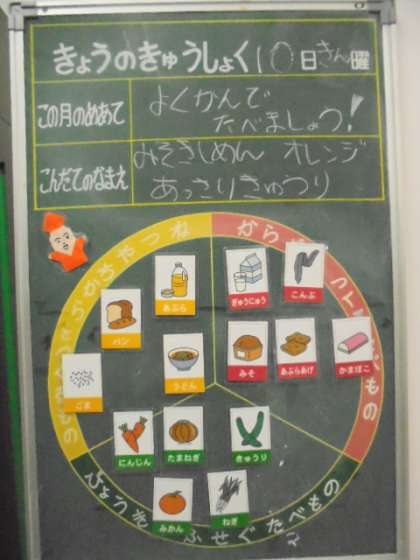 きょうのきゅうしょく 10日 きん曜
この月のめあて
よくかんで
たべましょう!
こんだてのなまえ
みそきしめん オレンジ
あっさりきゅうり
ぎゅうにゅう
こんぶ
あぶら
パン
うどん
みそ
あぶらあげ
かまぼこ
ごま
にんじん
たまねぎ
きゅうり
みかん
ねぎ
ふせぐたべもの